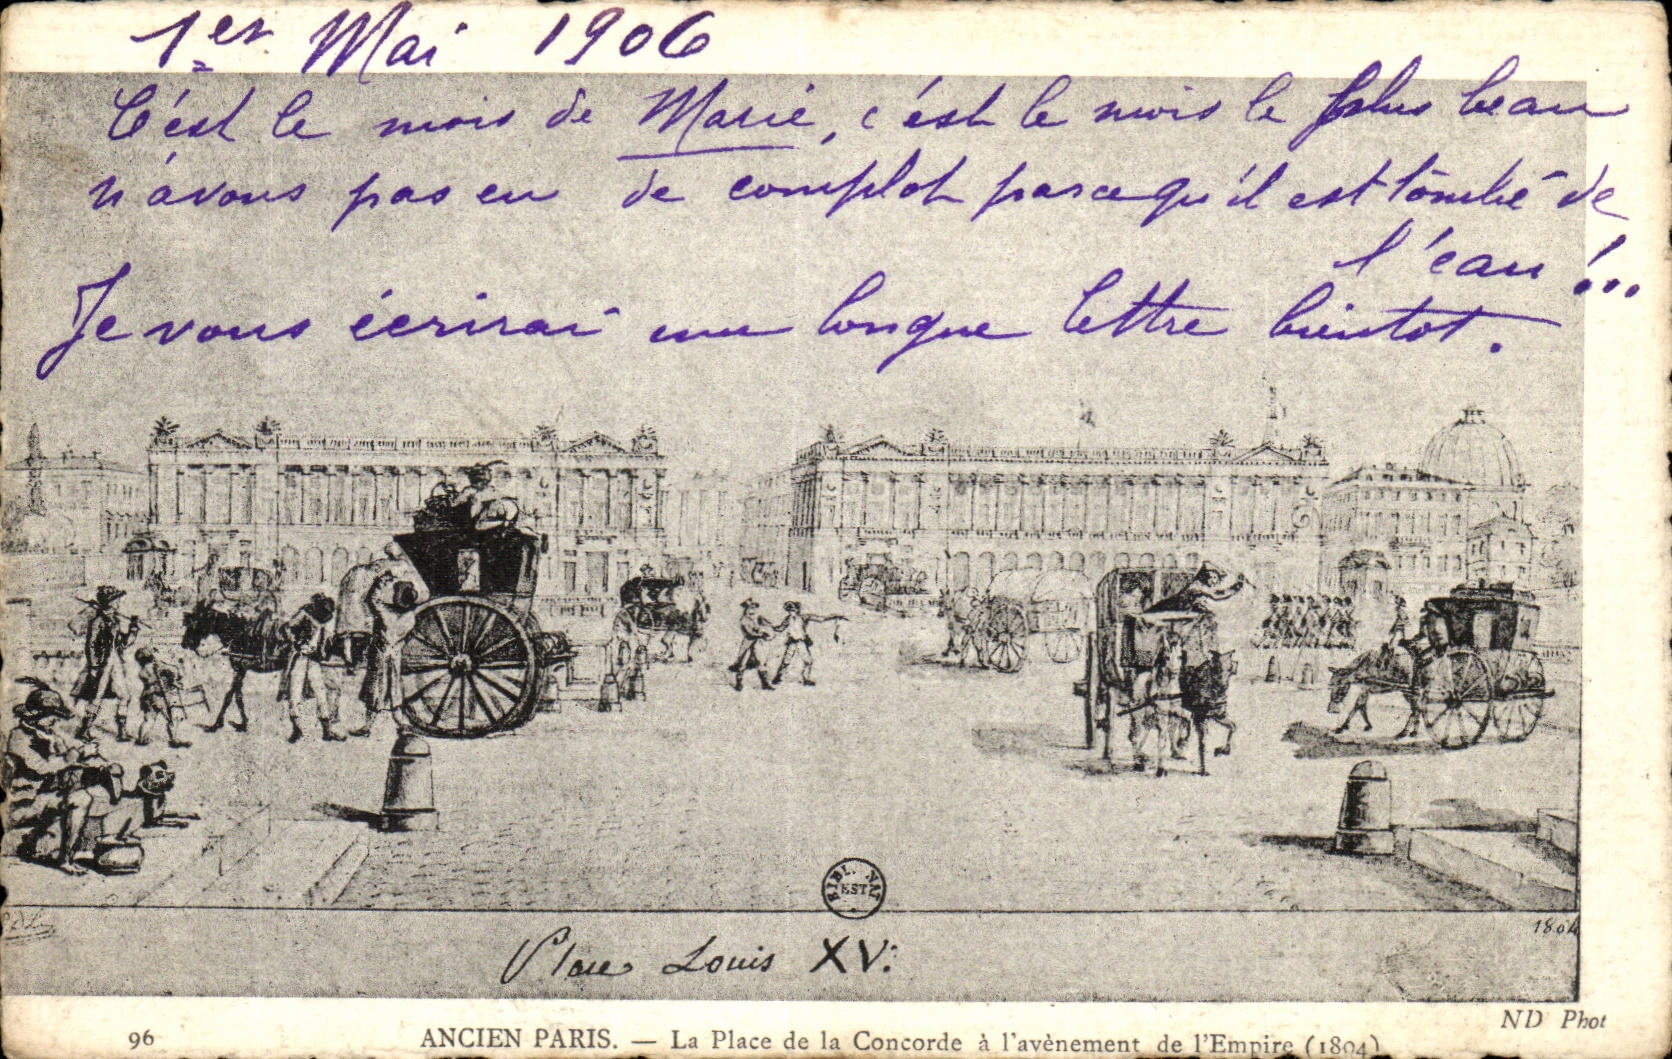 1er Mai 1906
C'est le mois de Marie, c'est le mois le plus beau
n'avons pas eu de complot parcequ'il est tombé de
l'eau!...
Je vous écrirai une longue lettre bientot.
BIBL. NAT EST
1804
Place Louis XV.
ND Phot
96 ANCIEN PARIS. — La Place de la Concorde à l'avènement de l'Empire (1804)